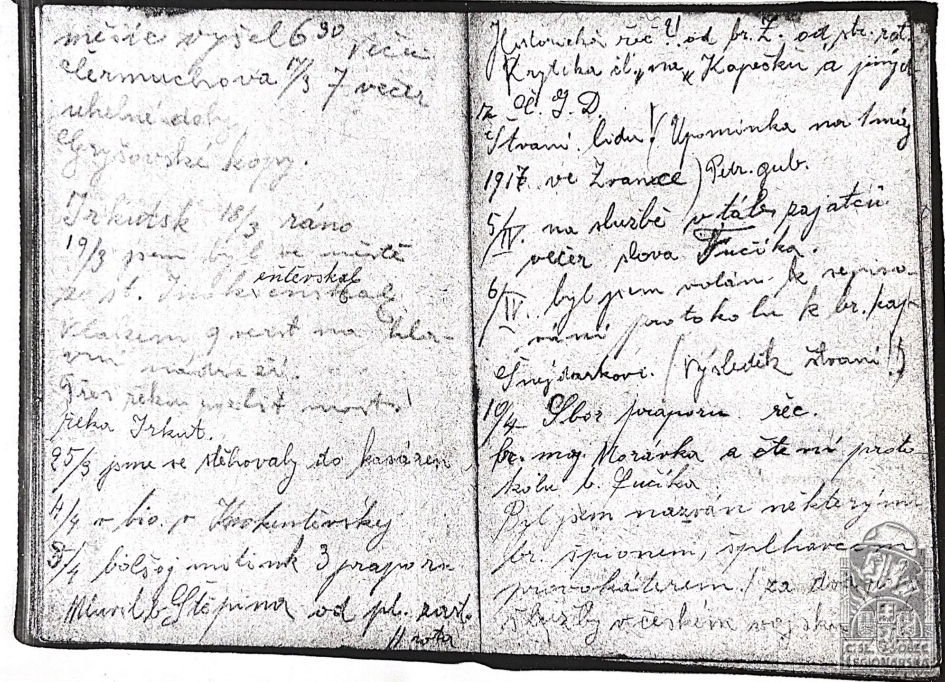 měsíc vyšel 6 30 večer
Čermuchova 17/3 7 večer
uhelné doly
Gryšovské kopy.
Irkutsk 18/3 ráno
19/3 jsem byl ve městě
ze st. Inokentěvskaj
vlakem 9 verst na hlav-
ní nádraží.
Přes řeku veliký most!
řeka Irkut.
25/3 jsme se stěhovaly do kasáren,
4/4 v bio. v Inokentěvskej
5/4 bolšoj mitink 3 praporu
Mluvil b. Štěpina od pl. zast.
11 rota
Historická řeč!! od br. Z. od
Krytika čl. na Kapečku a jiných
z Č. J. D.
Štvaní lidu! (Upomínka na 1 máj
1917 ve Zvance) Petr. gub.
5/IV. na službě v táb. zajatců
večer slova Fučíka.
6/IV. byl jsem volán k sepiso-
vání protokolu k br. kap.
Šnejdarkovi. (Výsledek štvaní!)
10/4 Sbor praporu řeč.
br. maj. Morávka a čtení proto
kólu b. Fučíka
Byl jsem nazván některými
br. špionem, šplhavcem
provokatérem! za
služby v českém vojsku
ČS. OBEC
LEGIONÁŘSKÁ